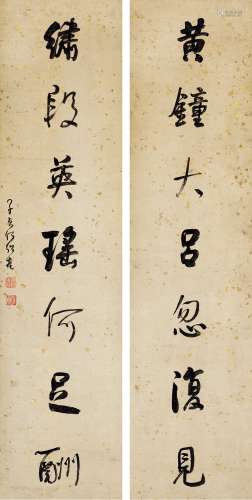 黄鐘大吕忽復見
繡段英瑤何足酬
子貞何紹基